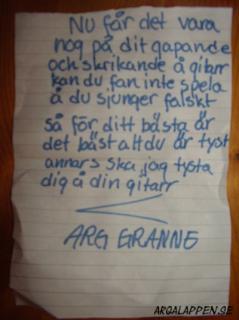 Nu får det vara
nog på dit gapande
och skrikande å gitarr
kan du fan inte spela
å du sjunger falskt
så för ditt bästa är
det bäst att du är tyst
annars ska jag tysta
dig å din gitarr
ARG GRANNE
ARGALAPPEN.SE